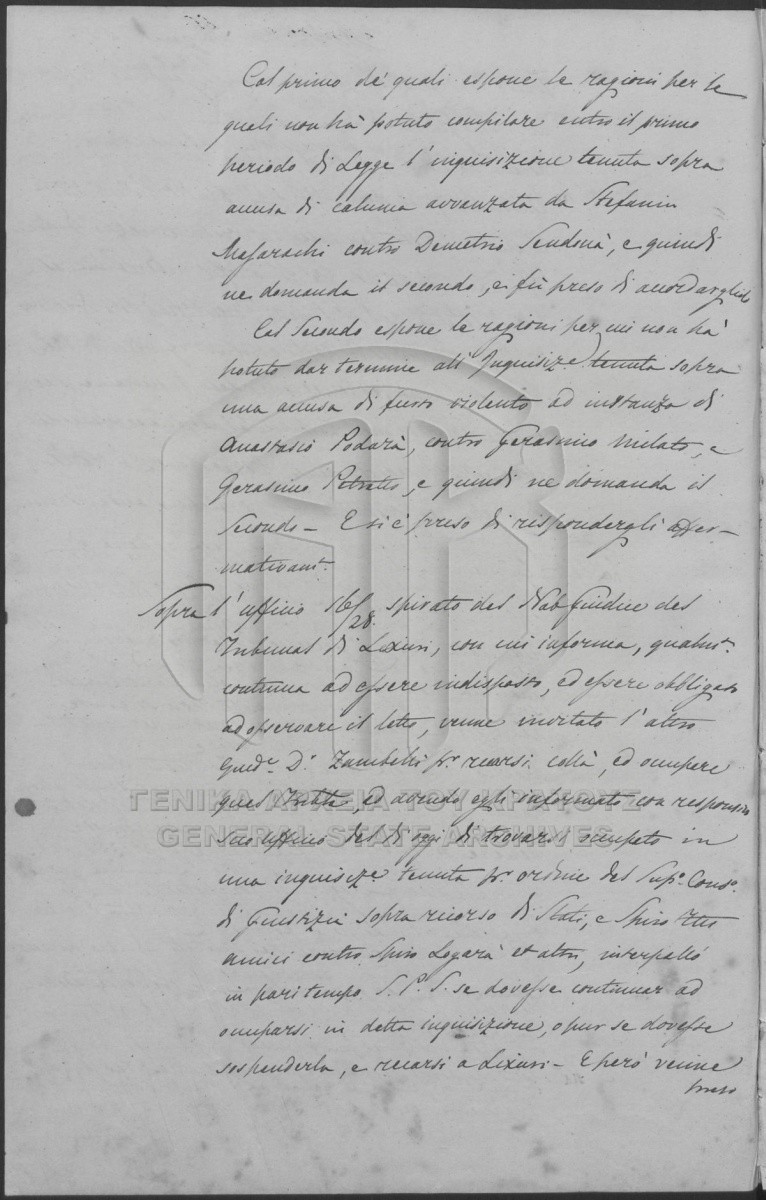 Col primo de' quali espone le ragioni per le
quali non hà potuto compilare entro il primo
periodo di Legge l'inquisizione tenuta sopra
accusa di calunia avvanzata da Stefanin
Masarachi contro Demetrio Sendonà, e quindi
ne domanda il secondo, e fù preso di accordarglielo
Col Secondo espone le ragioni per cui non hà
potuto dar termine all' Inquisize. tenuta sopra
una accusa di furto violento ad instanza di
Anastasio Podarà, contro Gerasimo Milato, e
Gerasimo Petratto, e quindi ne domanda il
Secondo – E si è preso di rispondergli affer-
mativamte.
Sopra l'uffizio 16/28. spirato del Nob Giudice del
Tribunal di Lixuri, con cui informa, qualmte.
continua ad essere indisposto, ed essere obbligato
ad osservare il letto, venne invitato l'altro
Giude. Dr. Zambelli pr. recarsi collà, ed occupare
quel Trible, ed avendo egli informato con responsivo
suo uffizio del dì oggi di trovarsi occupato in
una inquisize. tenuta pr. ordine del Supo. Conso.
di Giustizia sopra ricorso di Stati, e Spiro
amici contro Spiro Logarà et altri, interpellò
in pari tempo S. P. S. se dovesse continuar ad
occuparsi in detta inquisizione, o pur se dovesse
sospenderla, e recarsi a Lixuri – E però venne
preso
ΓΕΝΙΚΑ ΑΡΧΕΙΑ ΤΟΥ ΚΡΑΤΟΥΣ
GENERAL STATE ARCHIVES